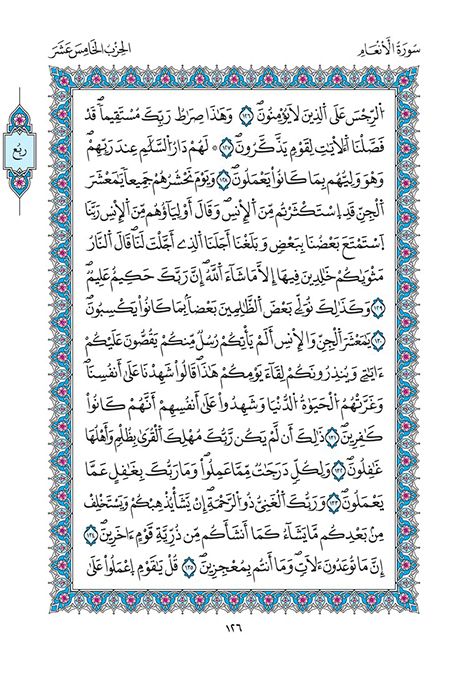 سُورَةُ الْأَنْعَامِ
الحِزْبُ الخَامِسَ عَشَرَ
رُبُع
اَلرِّجْسَ عَلَى اَلذِينَ لَا يُومِنُونَۖ ١٢٦ وَهَٰذَا صِرَٰطُ رَبِّكَ مُسْتَقِيماٗۖ قَدْ
فَصَّلْنَا اَلْأيَٰتِ لِقَوْمٖ يَذَّكَّرُونَۖ ١٢٧ ۞ لَهُمْ دَارُ اُلسَّلَٰمِ عِندَ رَبِّهِمْۖ
وَهُوَ وَلِيُّهُم بِمَا كَانُواْ يَعْمَلُونَۖ ١٢٨ وَيَوْمَ نَحْشُرُهُمْ جَمِيعاٗ يَٰمَعْشَرَ
اَلْجِنِّ قَدِ اِسْتَكْثَرْتُم مِّنَ اَلْإِنسِۖ وَقَالَ أَوْلِيَآؤُهُم مِّنَ اَلْإِنسِ رَبَّنَا
اَسْتَمْتَعَ بَعْضُنَا بِبَعْضٖ وَبَلَغْنَا أَجَلَنَا اَلذِے أَجَّلْتَ لَنَاۖ قَالَ اَلنَّارُ
مَثْوٜيٰكُمْ خَٰلِدِينَ فِيهَا إِلَّا مَا شَآءَ اَللَّهُۖ إِنَّ رَبَّكَ حَكِيمٌ عَلِيمٞۖ
١٢٩ وَكَذَٰلِكَ نُوَلِّے بَعْضَ اَلظَّٰلِمِينَ بَعْضاَۢ بِمَا كَانُواْ يَكْسِبُونَۖ
١٣٠ يَٰمَعْشَرَ اَلْجِنِّ وَالْإِنسِ أَلَمْ يَأْتِكُمْ رُسُلٞ مِّنكُمْ يَقُصُّونَ عَلَيْكُمْ
ءَايَٰتِے وَيُنذِرُونَكُمْ لِقَآءَ يَوْمِكُمْ هَٰذَاۖ قَالُواْ شَهِدْنَا عَلَىٰ أَنفُسِنَاۖ
وَغَرَّتْهُمُ اُلْحَيَوٰةُ اُلدُّنْيَا وَشَهِدُواْ عَلَىٰ أَنفُسِهِمْ أَنَّهُمْ كَانُواْ
كَٰفِرِينَۖ ١٣١ ذَٰلِكَ أَن لَّمْ يَكُن رَّبُّكَ مُهْلِكَ اَلْقُرَىٰ بِظُلْمٖ وَأَهْلُهَا
غَٰفِلُونَۖ ١٣٢ وَلِكُلّٖ دَرَجَٰتٞ مِّمَّا عَمِلُواْۖ وَمَا رَبُّكَ بِغَٰفِلٍ عَمَّا
يَعْمَلُونَۖ ١٣٣ وَرَبُّكَ اَلْغَنِيُّ ذُو اُلرَّحْمَةِۖ إِنْ يَّشَأْ يُذْهِبْكُمْ وَيَسْتَخْلِفْ
مِنۢ بَعْدِكُم مَّا يَشَآءُ كَمَا أَنشَأَكُم مِّن ذُرِّيَّةِ قَوْمٍ ءَاخَرِينَۖ ١٣٤
إِنَّ مَا تُوعَدُونَ ءَلَأتٖۖ وَمَا أَنتُم بِمُعْجِزِينَۖ ١٣٥ قُلْ يَٰقَوْمِ اِعْمَلُواْ عَلَىٰ
١٢٦